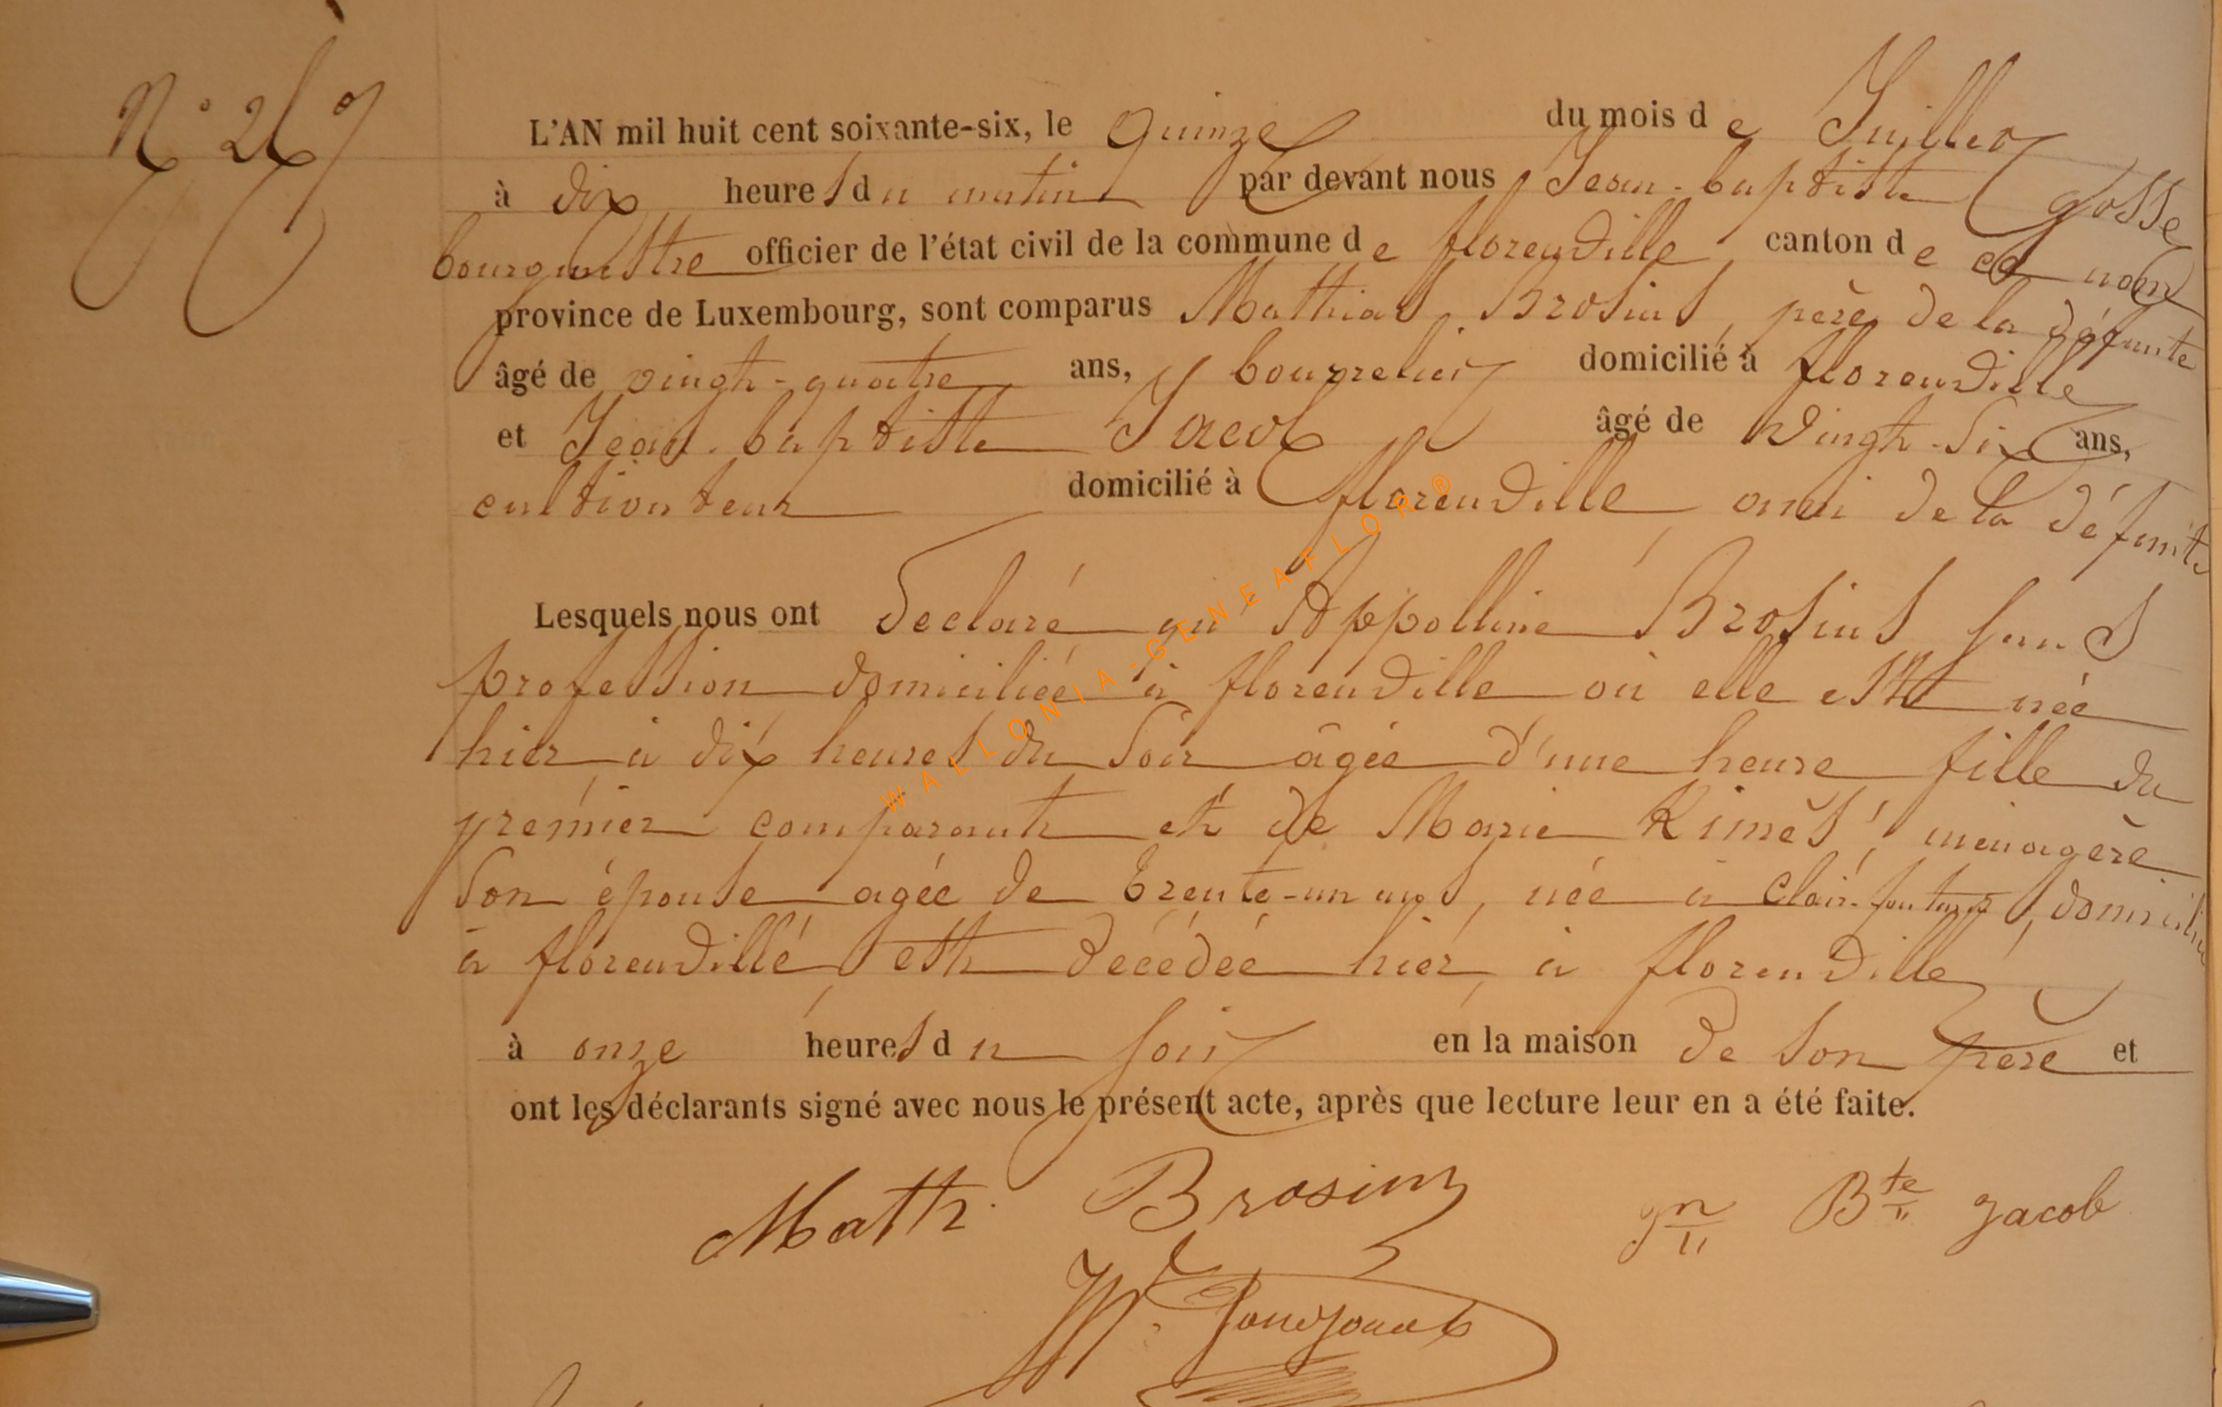 N° 267
L'AN mil huit cent soixante-six, le quinze du mois de Juillet
à dix heures du matin par devant nous Jean-baptiste gosse
bourgmestre officier de l'état civil de la commune de florenville, canton de ce nom
province de Luxembourg, sont comparus Mathias Brosius, père de la défunte
âgé de vingt-quatre ans, bourrelier domicilié à florenville
et Jean-baptiste Jacob âgé de vingt-six ans,
cultivateur domicilié à florenville, ami de la défunte
Lesquels nous ont déclaré qu'Appolline Brosius sans
profession domiciliée à florenville où elle est née
hier à dix heures du soir âgée d'une heure fille du
premier comparant et de Marie Kimes, ménagère
son épouse agée de trente-un ans, née à Clairfontaine, domiciliée
à florenville, est décédée hier, à florenville
à onze heures du soir en la maison de son père et
ont les déclarants signé avec nous le présent acte, après que lecture leur en a été faite.
Math. Brosius Jn Bte Jacob
WALLONIA-GENEAFLOR®